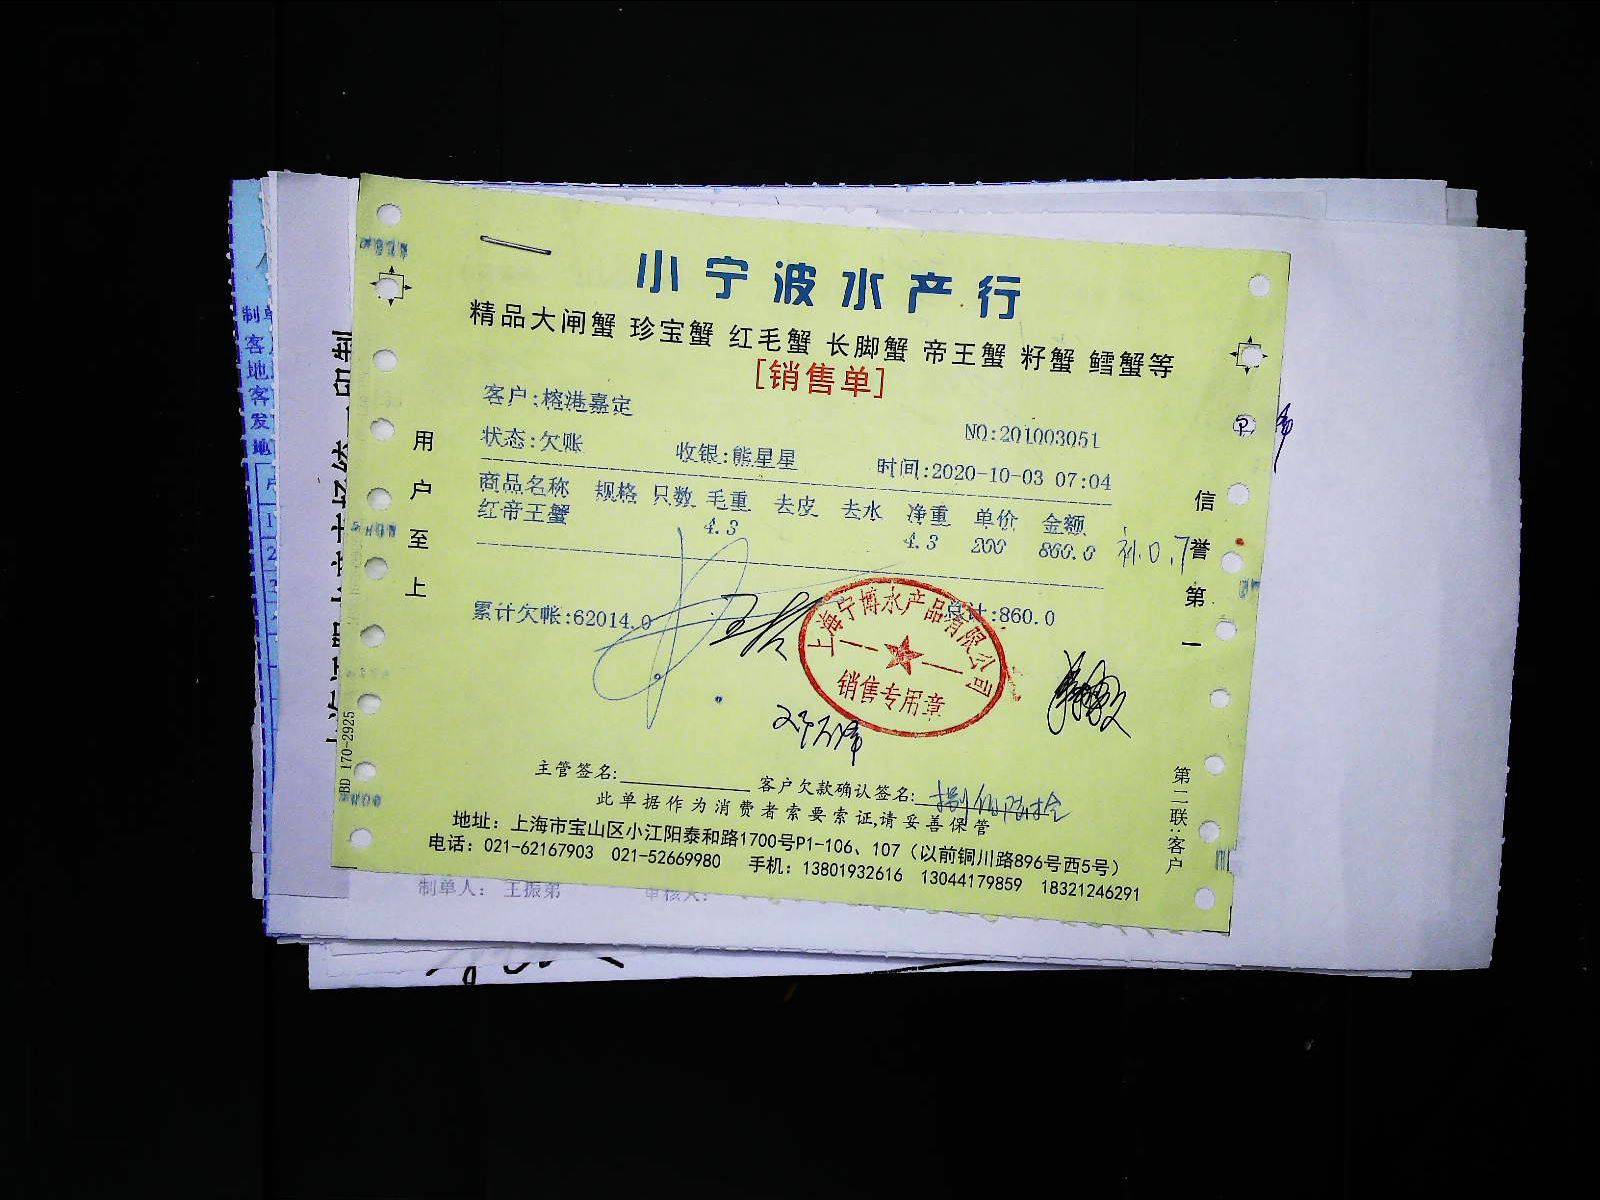 小宁波水产行
精品大闸蟹 珍宝蟹 红毛蟹 长脚蟹 帝王蟹 籽蟹 鳕蟹等
[销售单]
客户:榕港嘉定
NO:201003051
状态:欠账 收银:熊星星 时间:2020-10-03 07:04
商品名称 规格 只数 毛重 去皮 去水 净重 单价 金额
红帝王蟹 4.3 4.3 200 860.0
补0.7
累计欠帐:62014.0 总计:860.0
上海宁博水产品有限公司
销售专用章
主管签名: 客户欠款确认签名:
此单据作为消费者索要索证,请妥善保管
地址：上海市宝山区小江阳泰和路1700号P1-106、107（以前铜川路896号西5号）
电话：021-62167903 021-52669980 手机：13801932616 13044179859 18321246291
用户至上
信誉第一
第二联:客户
BD 170-2925
制单人： 王振弟 审核人: